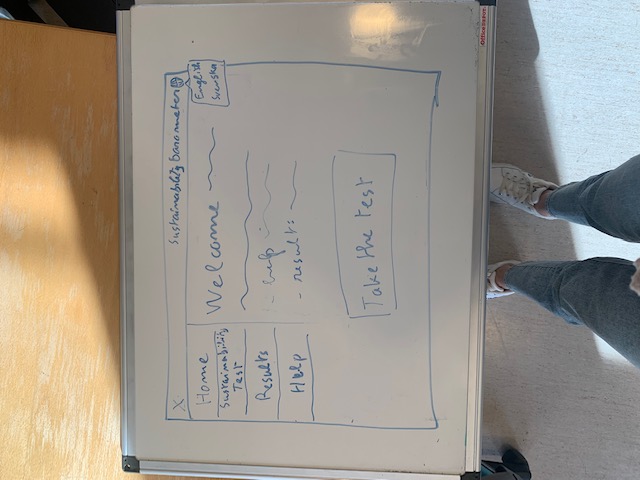 X
Sustainability barometer
English
Svenska
Home
Sustainability
Test
Results
Help
Welcome
- help
- results:
Take the test
Office DEPOT